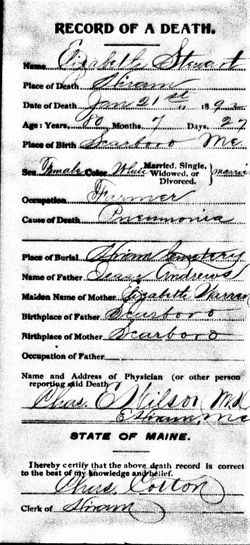 RECORD OF A DEATH.
Name Elizabeth Stewart
Place of Death Hiram
Date of Death Jan 21st, 189
Age: Years, 80 Months, 7 Days, 27
Place of Birth Scarboro Me
Sex Female Color White Married, Single, Widowed, or Divorced.
Occupation
Cause of Death Pneumonia
Place of Burial Hiram Cemetery
Name of Father Isaac Andrews
Maiden Name of Mother Elizabeth Warren
Birthplace of Father Scarboro
Birthplace of Mother Scarboro
Occupation of Father
Name and Address of Physician (or other person
reporting said Death
Chas. E Wilson Md
Hiram, Me
STATE OF MAINE.
I hereby certify that the above death record is correct
to the best of my knowledge and belief.
Chas. Cotton
Clerk of Hiram